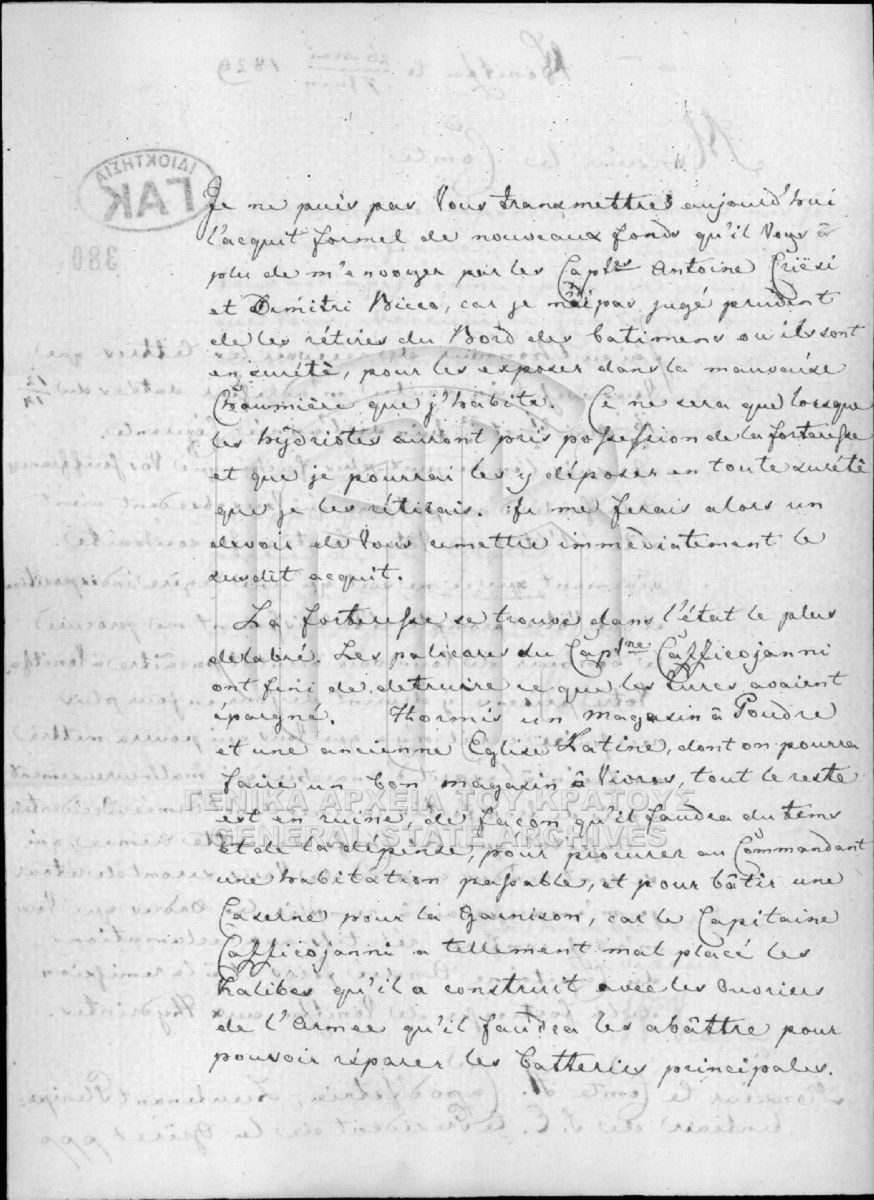 Je ne puis pas Vous transmettre aujourd'hui
l'acquit formel de nouveaux fonds qu'il Vous à
plu de m'envoyer par les Capnes Antoine Criësi
et Dimitri Bicco, car je n'ai pas jugé prudent
de les rétirer du Bord des batimens ou ils sont
en sureté, pour les exposer dans la mauvaise
Chaumière que j'habite. Ce ne sera que lorsque
les hÿdriotes auront pris possession de la forteresse
et que je pourrai les y déposer en toute sureté
que je les rétirais. Je me ferais alors un
devoir de Vous remettre immédiatement le
susdit acquit.
La forteresse se trouve dans l'état le plus
delabré. Les palicares du Captne Cafficojanni
ont fini de detruire ce que les Turcs avaient
épargné. Hormis un magasin à Poudre
et une ancienne Eglise Latine, dont on pourra
faire un bon magasin à Vivres, tout le reste
est en ruine, de façon qu'il faudra du tems
et de la dépense, pour procurer au Commandant
une habitation passable, et pour bâtir une
Caserne pour la Garnison, car le Capitaine
Cafficojanni a tellement mal placé les
Kalibes qu'il a construit avec les Ouvriers
de l'Armée qu'il faudra les abâttre pour
pouvoir réparer les batteries principales.
ΙΔΙΟΚΤΗΣΙΑ
ΓΑΚ
380
ΓΕΝΙΚΑ ΑΡΧΕΙΑ ΤΟΥ ΚΡΑΤΟΥΣ
GENERAL STATE ARCHIVES